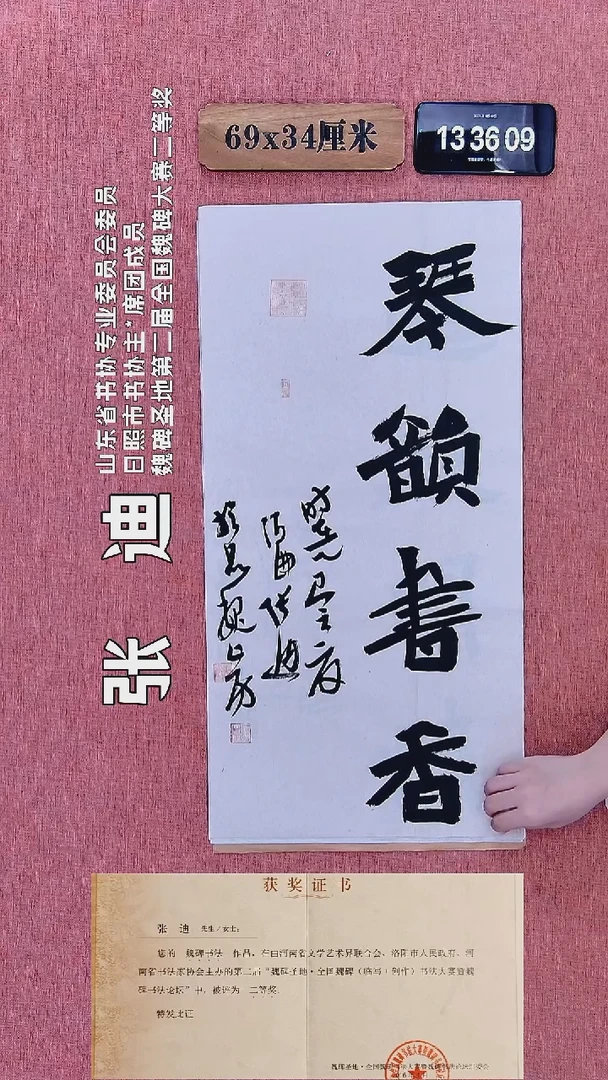 69x34厘米
13 36 09
琴韻書香
张 迪
山东省书协专业委员会委员
日照市书协主*席团成员
魏碑圣地第二届全国魏碑大赛二等奖
获奖证书
张 迪 先生/女士:
您的 魏碑书法 作品,在由河南省文学艺术界联合会、洛阳市人民政府、河
南省书法家协会主办的第二届“魏碑圣地·全国魏碑(临写)创作)书法大赛暨魏
碑书法论坛”中,被评为 二等奖
特发此证